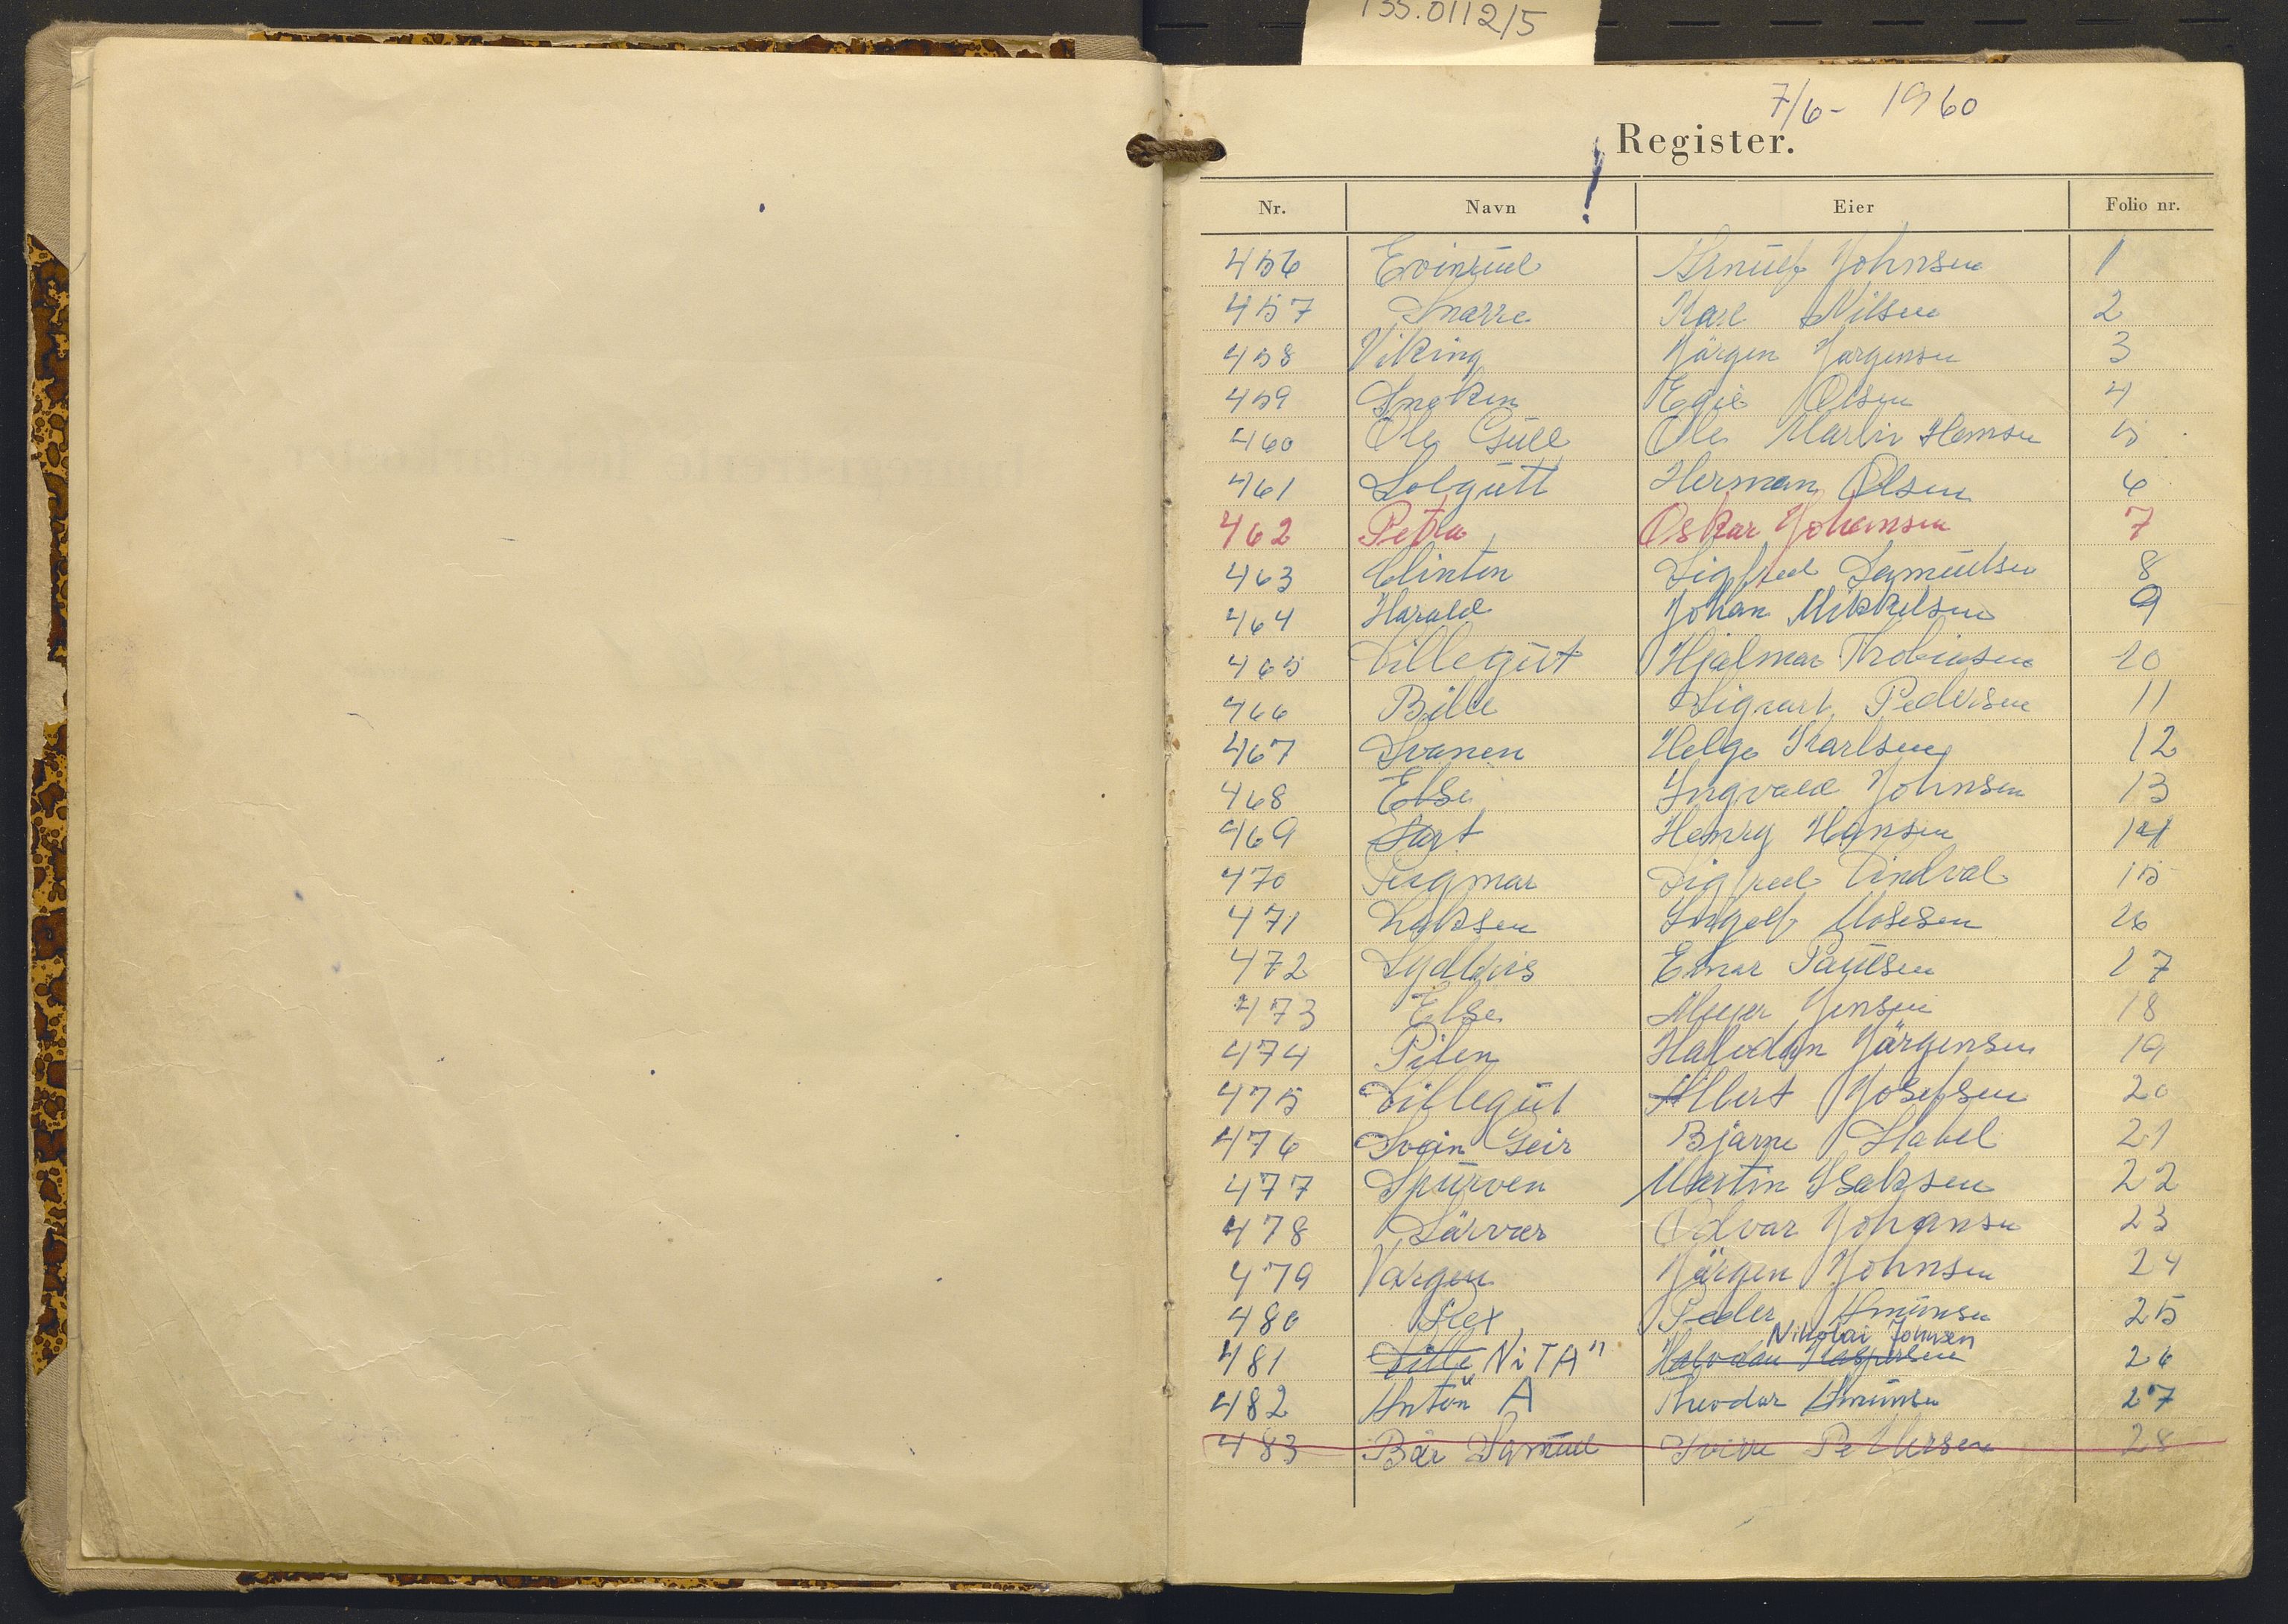 135.0112/5
7/6- 1960
Register.
!
Nr. Navn Eier Folio nr.
456 Evinrud Arnulf Johnsen 1
457 Snarre Karl Nilsen 2
458 Viking Järgen Jørgensen 3
459 Snøken Egil Olsen 4
460 Ole Gull Ole Martin Hansen 5
461 Solgutt Herman Olsen 6
462 Petra Oskar Johansen 7
463 Clinton Sigfred Samuelsen 8
464 Harald Johan Mikkelsen 9
465 Lillegut Hjalmar Thobiasen 10
466 Bille Sigvart Pedersen 11
467 Svanen Helge Karlsen 12
468 Else Ingvald Johnsen 13
469 Fart Henry Hansen 14
470 Sigfred Lindval 15
471 Laksen Ingolf Mosesen 16
472 Einar Paulsen 17
473 Else Meyer Jensen 18
474 Pilen Halvdan Järgensen 19
475 Lillegut Albert Josefsen 20
476 Svein Geir Bjarne Stabel 21
477 Spurven Martin Isaksen 22
478 Särvær Odvar Johansen 23
479 Vargen Järgen Johnsen 24
480 Rex Peder Amunsen 25
Nikolai Johnsen
481 Litte NiTA" Halvdan Kaspersen 26
482 Anton A Theodor Amunsen 27
483 Bär Samuel Pettersen 28